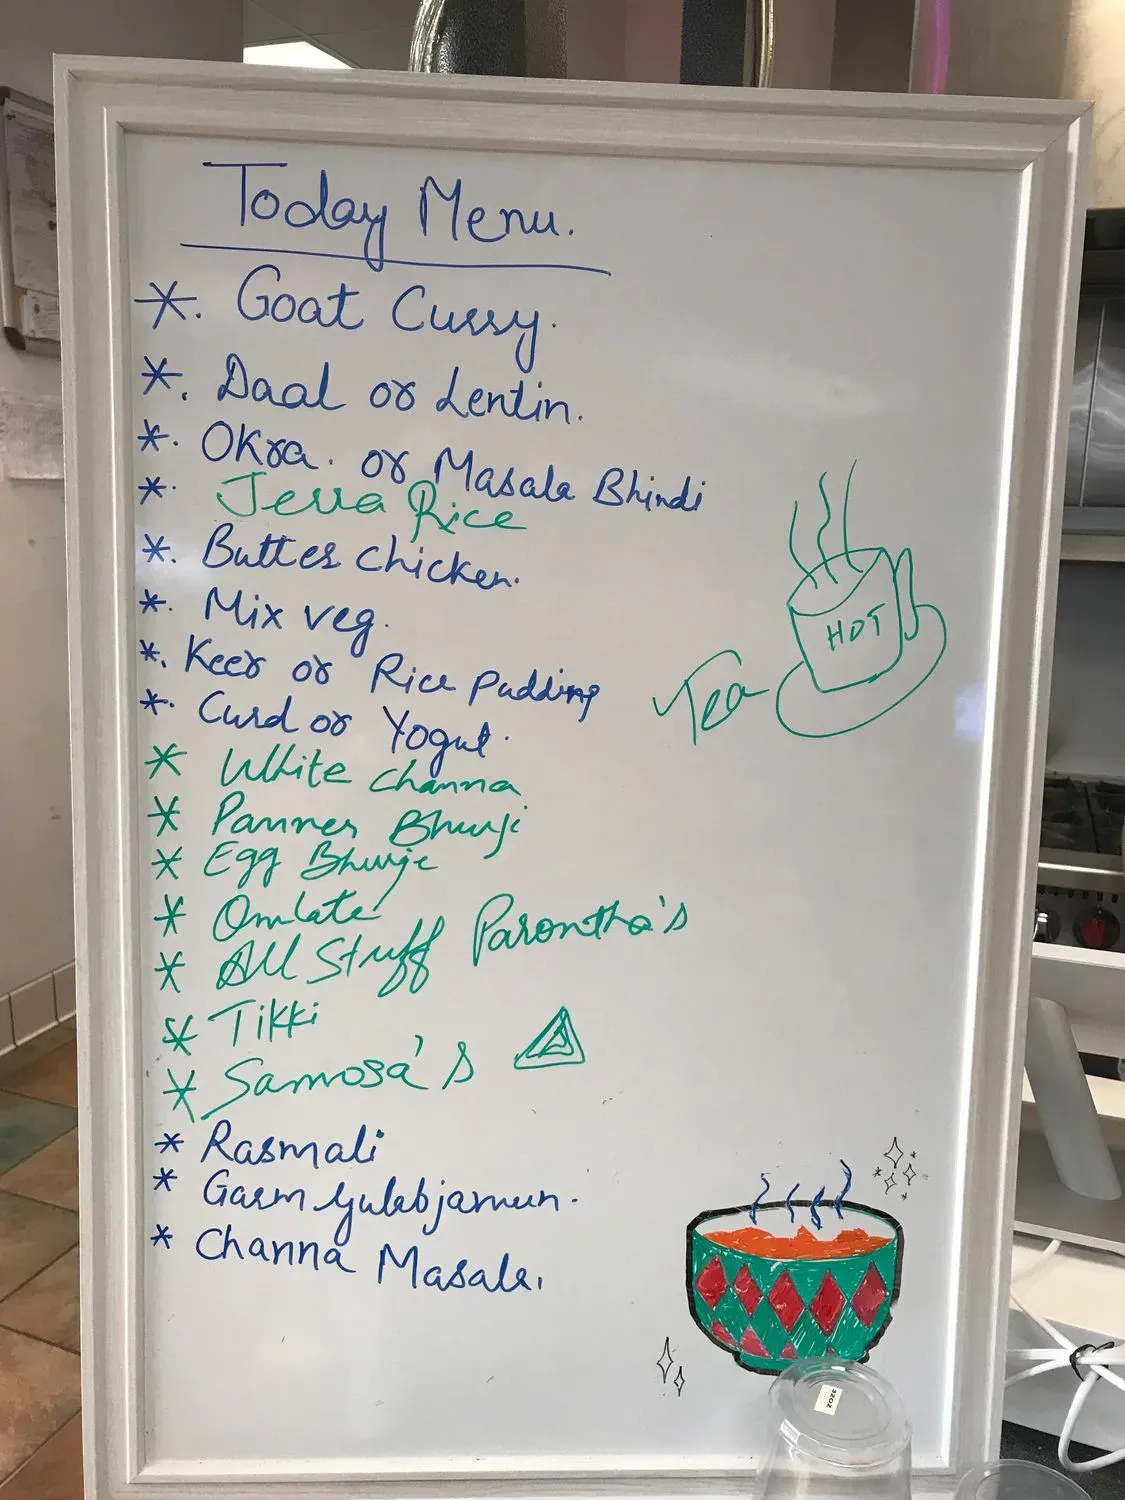 Today Menu.
*. Goat Curry.
*. Daal or Lentin.
*. Okra. or Masala Bhindi
*. Jerra Rice
*. Butter chicken.
*. Mix veg.
*. Keer or Rice Pudding
*. Curd or Yogut.
* White channa
* Panner Bhurji
* Egg Bhurje
* Omlate
* All Stuff Parontha's
* Tikki
* Samosa's
* Rasmali
* Garm gulabjamun.
* Channa Masala.
HOT
Tea
32OZ